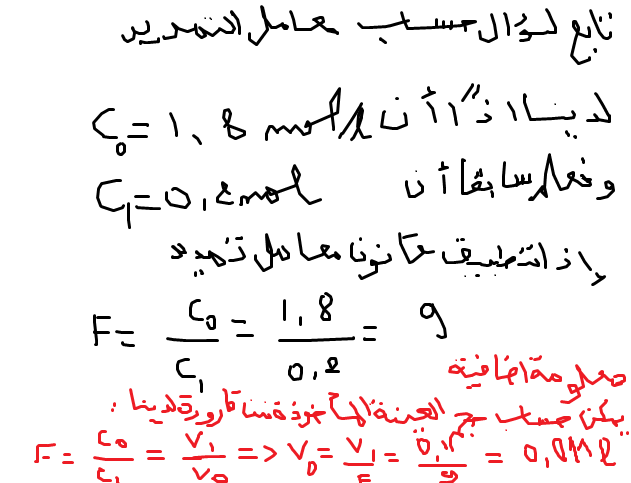 تابع لسؤال حساب معامل التمديد
لدينا اذاً أن C₀ = 1,8 mol/l
ونعلم سابقا أن C₁ = 0,2 mol
إذا بتطبيق قانون معامل تمديد
F = C₀/C₁ = 1,8/0,2 = 9
معلومة اضافية
يمكن حساب حجم العينة المأخوذة من قارورة لدينا :
F = C₀/C₁ = V₁/V₀ => V₀ = V₁/F = 0,1/9 = 0,011 l